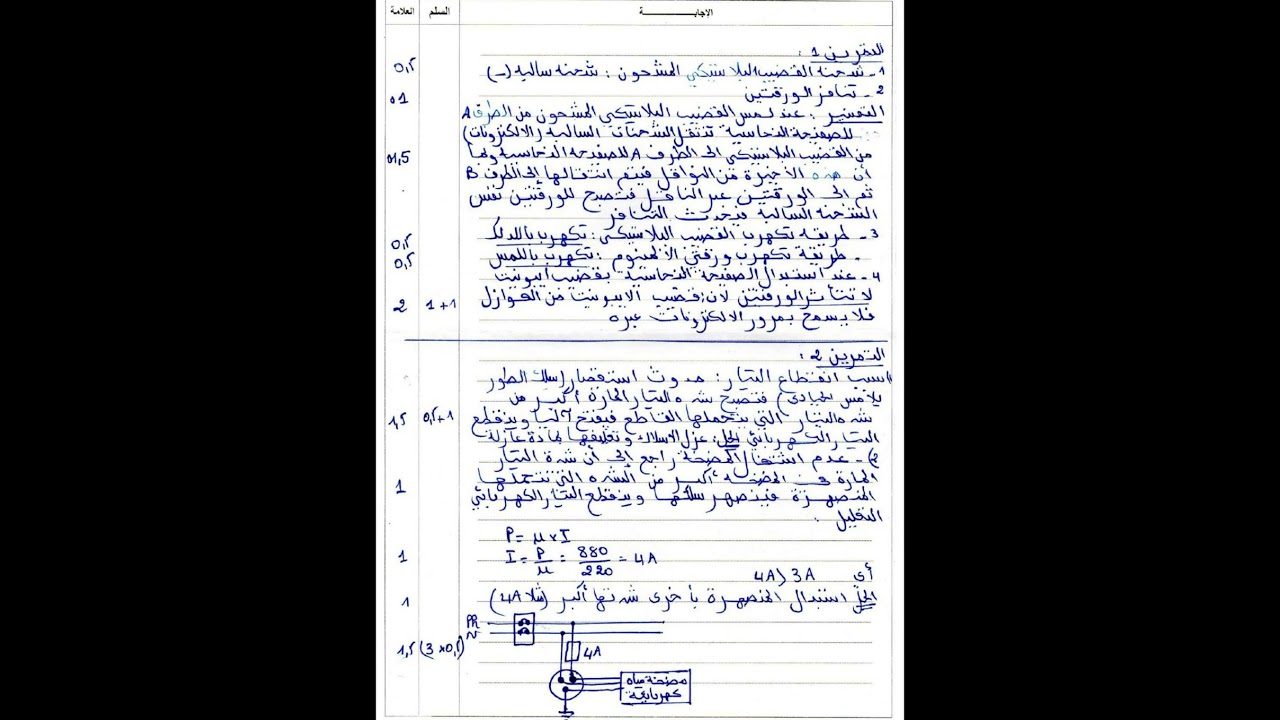 العلامة السلم الاجابة
التمرين 1 :
1- شحنة القضيب البلاستيكي المشحون : شحنة سالبة (-) 0,5
2- تنافر الورقتين 01
التفسير : عند لمس القضيب البلاستيكي المشحون من الطرف A
للصفيحة النحاسية تنتقل الشحنات السالبة (الالكترونات)
من القضيب البلاستيكي الى الطرف A للصفيحة النحاسية وبما 01,5
أن هذه الأخيرة من النواقل فيتم انتقالها إلى الطرف B
ثم الى الورقتين عبر الناقل فتصبح للورقتين نفس
الشحنة السالبة فيحدث التنافر
3- طريقة تكهرب القضيب البلاستيكي : تكهرب بالدلك 0,5
. طريقة تكهرب ورقتي الألمنيوم : تكهرب باللمس 0,5
4- عند استبدال الصفيحة النحاسية بقضيب ايبونيت
لا تتأثر الورقتين لأن قضيب الايبونيت من العوازل 1+1 2
فلا يسمح بمرور الالكترونات عبره
التمرين 2 :
1) سبب انقطاع التيار : حدوث استقصار (سلك الطور
يلامس الحيادي) فتصبح شدة التيار المارة أكبر من
شدة التيار التي يتحملها القاطع فيفتح آليا وينقطع 0,5+1 1,5
التيار الكهربائي الحل : عزل الاسلاك وتغليفها بمادة عازلة
2)- عدم اشتغال المضخة راجع إلى أن شدة التيار
المارة في المضخة أكبر من الشدة التي تتحملها 1
المنصهرة فينصهر سلكها وينقطع التيار الكهربائي
التعليل :
P = μ×I
I = P/μ = 880/220 = 4A 1
أي 4A > 3A
الحل استبدال المنصهرة بأخرى شدتها أكبر (مثلا 4A) 1
PR
N
4A (3×0,5) 1,5
مضخة مياه
كهربائية